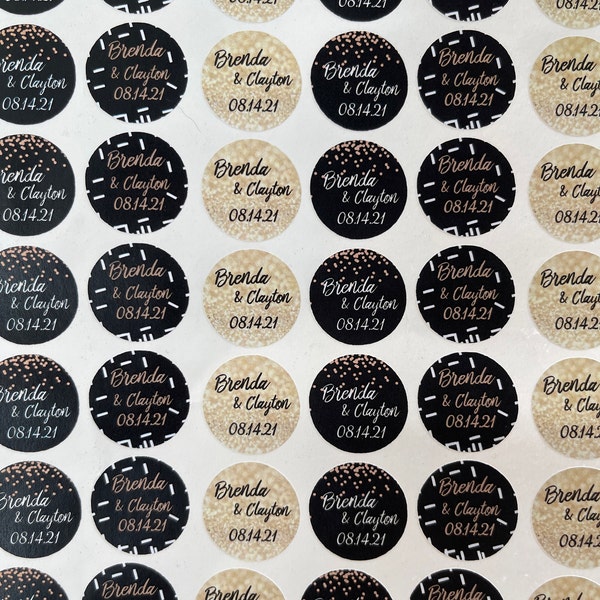 Brenda Brenda Brenda Brenda Brenda Brenda
& Clayton & Clayton & Clayton & Clayton & Clayton & Clayton
08.14.21 08.14.21 08.14.21 08.14.21 08.14.21 08.14.21
Brenda Brenda Brenda Brenda Brenda Brenda
& Clayton & Clayton & Clayton & Clayton & Clayton & Clayton
08.14.21 08.14.21 08.14.21 08.14.21 08.14.21 08.14.21
Brenda Brenda Brenda Brenda Brenda Brenda
& Clayton & Clayton & Clayton & Clayton & Clayton & Clayton
08.14.21 08.14.21 08.14.21 08.14.21 08.14.21 08.14.21
Brenda Brenda Brenda Brenda Brenda Brenda
& Clayton & Clayton & Clayton & Clayton & Clayton & Clayton
08.14.21 08.14.21 08.14.21 08.14.21 08.14.21 08.14.21
Brenda Brenda Brenda Brenda Brenda Brenda
& Clayton & Clayton & Clayton & Clayton & Clayton & Clayton
08.14.21 08.14.21 08.14.21 08.14.21 08.14.21 08.14.21
Brenda Brenda Brenda Brenda